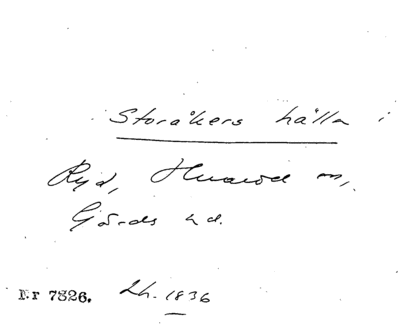 Storåkers hälla i
Ryd, Huaröd sn,
Gärds hd.
Nr 7826. Lh. 1836